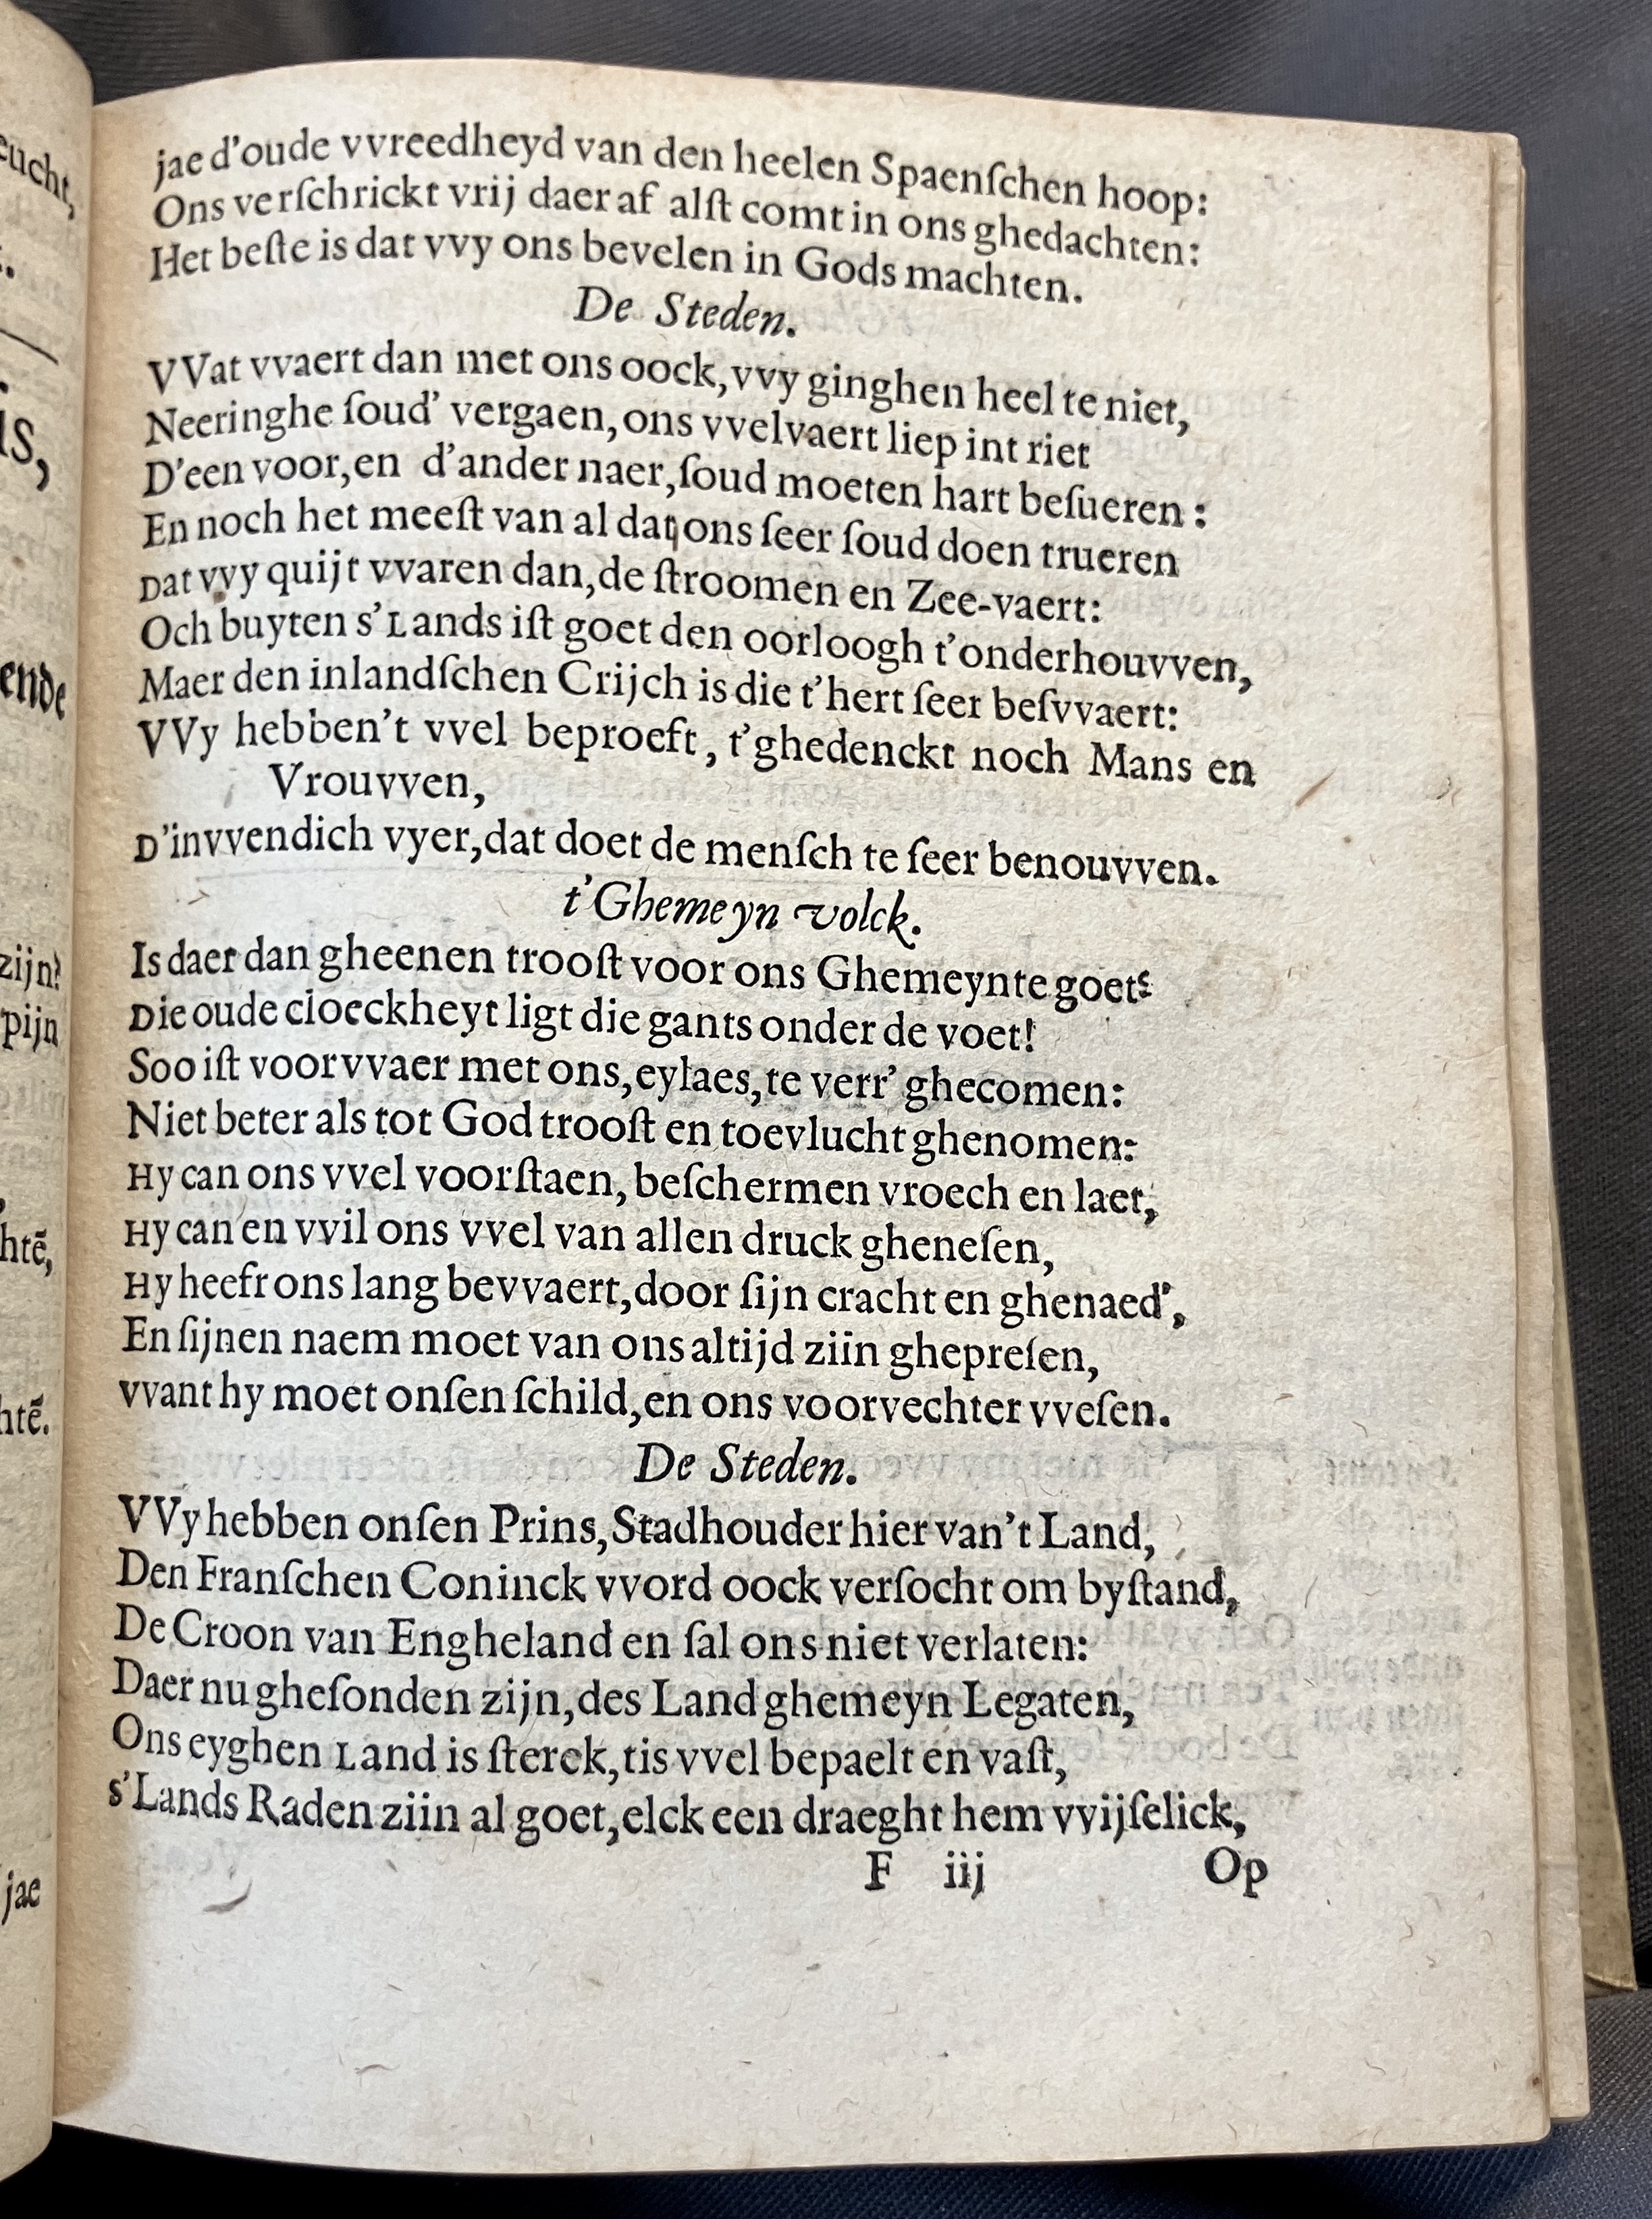 jae d'oude vvreedheyd van den heelen Spaenſchen hoop:
Ons verſchrickt vrij daer af alſt comt in ons ghedachten:
Het beſte is dat vvy ons bevelen in Gods machten.
De Steden.
VVat vvaert dan met ons oock, vvy ginghen heel te niet,
Neeringhe ſoud' vergaen, ons vvelvaert liep int riet
D'een voor, en d'ander naer, ſoud moeten hart beſueren:
En noch het meeſt van al dat ons ſeer ſoud doen trueren
Dat vvy quijt vvaren dan, de ſtroomen en Zee-vaert:
Och buyten s'Lands iſt goet den oorloogh t'onderhouvven,
Maer den inlandſchen Crijch is die t'hert ſeer beſvvaert:
VVy hebben't vvel beproeft, t'ghedenckt noch Mans en
Vrouvven,
D'invvendich vyer, dat doet de menſch te ſeer benouvven.
t'Ghemeyn volck.
Is daer dan gheenen trooſt voor ons Ghemeynte goet?
Die oude cloeckheyt ligt die gants onder de voet!
Soo iſt voorvvaer met ons, eylaes, te verr' ghecomen:
Niet beter als tot God trooſt en toevlucht ghenomen:
Hy can ons vvel voorſtaen, beſchermen vroech en laet,
Hy can en vvil ons vvel van allen druck gheneſen,
Hy heefr ons lang bevvaert, door ſijn cracht en ghenaed',
En ſijnen naem moet van ons altijd ziin ghepreſen,
vvant hy moet onſen ſchild, en ons voorvechter vveſen.
De Steden.
VVy hebben onſen Prins, Stadhouder hier van't Land,
Den Franſchen Coninck vvord oock verſocht om byſtand,
De Croon van Engheland en ſal ons niet verlaten:
Daer nu gheſonden zijn, des Land ghemeyn Legaten,
Ons eyghen Land is ſterck, tis vvel bepaelt en vaſt,
s'Lands Raden ziin al goet, elck een draeght hem vvijſelick,
F iij Op
eucht,
is,
ende
zijn?
pijn
htē,
htē.
jae